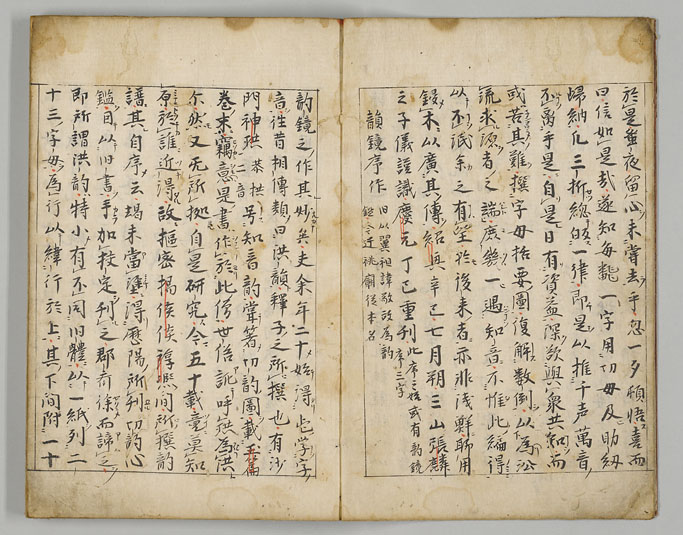 於是蚤夜留心未嘗去手忽一夕頓悟喜而
曰信如是哉遂知每翻一字用切母及助紐
歸納凡三折總皈一律即是以推千声萬音
不离乎是自是日有資益深欲與衆共知而
或苦其難撰字母括要圖復解数例以為㳂
流求源者之端庶幾一遇知音不惟此編得
以不泯余之有望於後来者亦非浅鮮聊用
鋟木以廣其傳紹興辛巳七月朔三山張麟
之子儀謹識慶元丁巳重刊此序之後或有韵鏡
序三字
韻鏡序作旧以翼祖諱敬改為韵
鑑今迁祧廟從本名
韵鏡之作其妙矣夫余年二十始得此学字
音往昔相傳類曰洪韻釋子之所撰也有沙
門神珙恭拱二音号知音韵甞著切韵圖載玉篇
巻末竊意是書作於此僧世俗訛呼珙為洪
尓然又无所拠自是研究今五十載竟莫知
原於誰近得故樞密楊侯倓淳熈間所撰韵
譜其自序云朅来當塗得歴陽所刊切韵心
鑑因以旧書手加挍定刊之郡斎徐而諦之
即所謂洪韵特小有不同旧體以一紙列二
十三字母為行以緯行於上其下間附一十